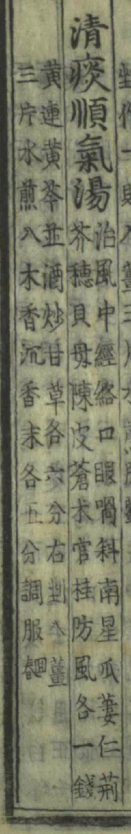 清痰順氣湯
治風中經絡口眼喎斜南星瓜蔞仁荊
芥穗貝母陳皮蒼朮官桂防風各一錢
黃連黃芩並酒炒甘草各六分右剉入薑
三片水煎入木香沉香末各五分調服